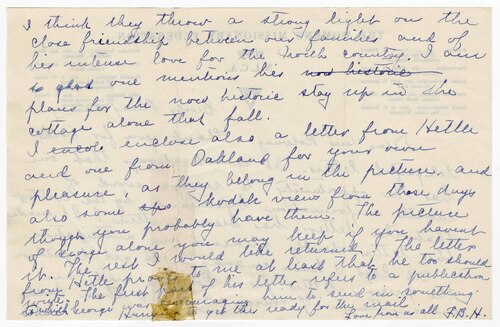 I think they throw a strong light on the
close friendship between our families and of
his intense love for the North country. I am
so glad one mentions his now historic
plans for the now historic stay up in the
cottage alone that fall.
I enclose also a letter from Hettie
and one from Oakland for your own
pleasure, as they belong in the picture, and
also some Kodak views from those days
though you probably have them. The picture
of George alone you may keep if you havent
it. The rest I would like returned. The letter
from Hettie to me at least that he too should
write. The first of his letter refers to a publication
to which George was encouraging him to send in something
Hurry to get this ready for the mail.
Love from us all F.B.H.